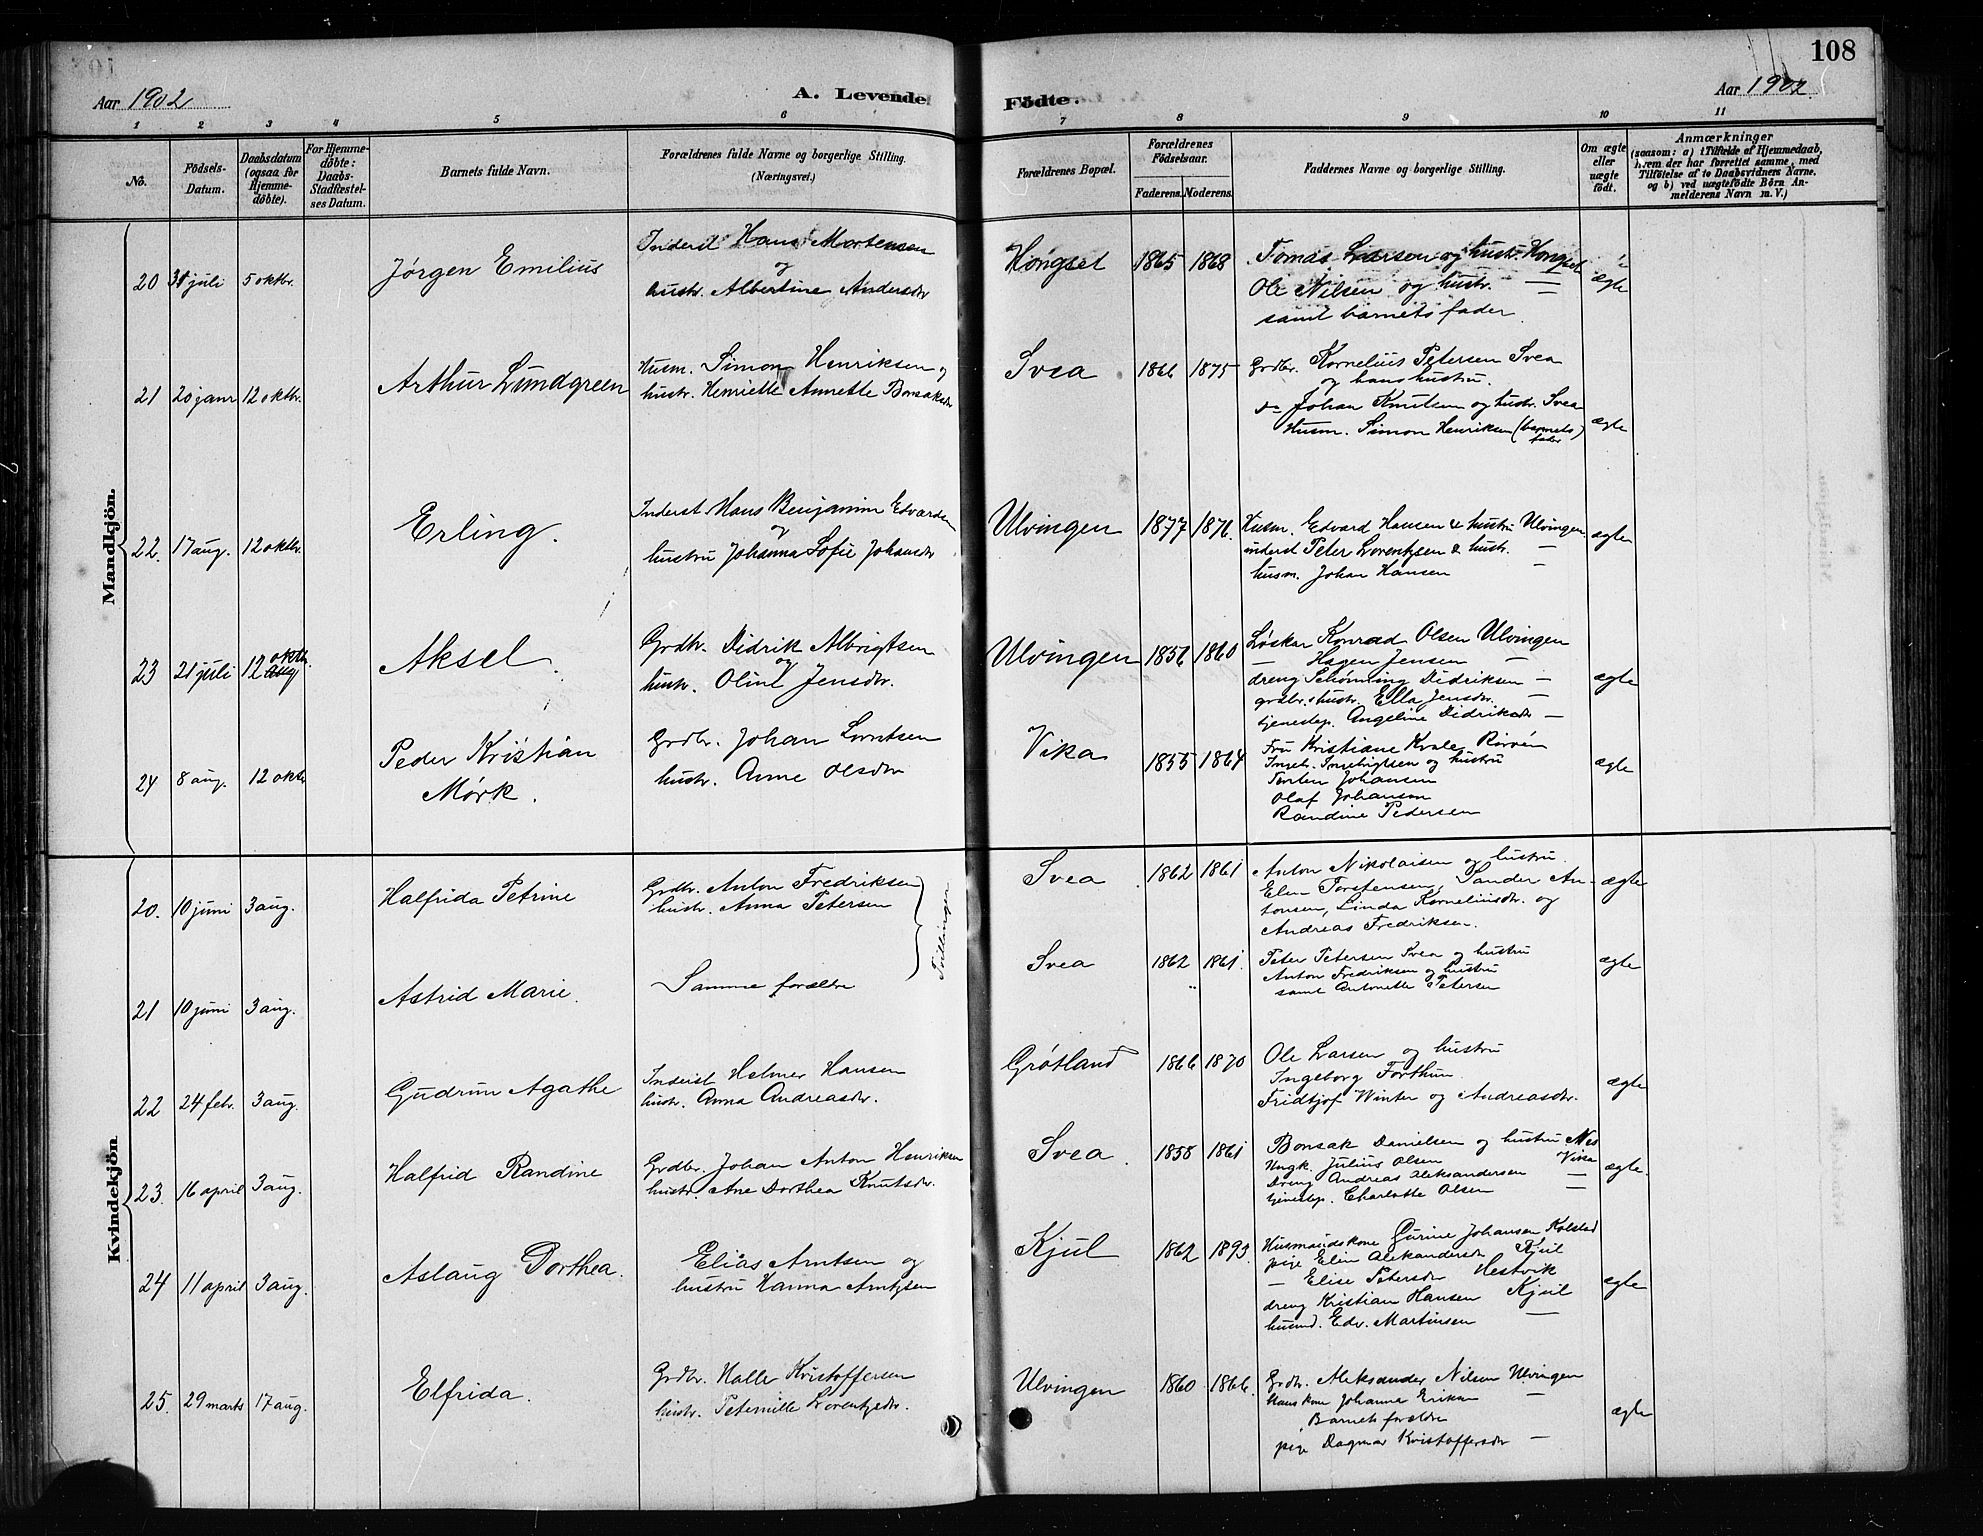 108
Aar 1902
A. Levende
Födte.
Aar 1902.
1 2 3 4 5 6 7 8 9 10 11
No.
Födsels-
Datum.
Daabsdatum
(ogsaa for
Hjemme-
døbte).
For Hjemme-
døbte:
Daabs-
Stadfæstel-
ses Datum.
Barnets fulde Navn.
Forældrenes fulde Navne og borgerlige Stilling.
(Næringsvei.)
Forældrenes Bopæl.
Forældrenes
Födselsaar.
Faderens. Moderens.
Faddernes Navne og borgerlige Stilling.
Om ægte
eller
uægte
födt.
Anmærkninger
(saasom: a) i Tilfælde af Hjemmedaab,
hvem der har forrettet samme, med
Tilföielse af to Daabsvidners Navne,
og b) ved uægtefödte Börn An-
melderens Navn m. V.)
Mandkjön.
20 31 juli 5 oktbr. Jørgen Emilius
Inderst Hans Mortensen
og
hustr. Albertine Andersdr
Hongset 1865 1868
Tomas Larsen og hustr. Hongset
Ole Nilsen og hustr. —
samt barnets fader.
ægte
21 20 janr 12 oktbr. Arthur Lundgreen
Husm. Simon Henriksen og
hustr. Henriette Annette Bonsaksdr
Svea 1866 1875
Grdbr. Kornelius Petersen Svea
og hans hustru.
do Johan Knutsen og hustr. Svea
Husm. Simon Henriksen (barnets)
fader
ægte
22. 17 aug. 12 oktbr. Erling.
Inderst Hans Benjamin Edvardsen
og
hustru Johanna Sofie Johansdr
Ulvingen 1877 1876.
Husm. Edvard Hansen & hustru Ulvingen
inderst Peter Lorentzsen & hustr. —
husm. Johan Hansen —
ægte
23 21 juli 12 oktbr. Aksel.
Grdbr. Didrik Albrigtsen
og
hustr. Oline Jensdr.
Ulvingen 1856 1860
Løskar Konrad Olsen Ulvingen
— Hagen Jensen —
dreng Schønning Didriksen —
grdbr.shustr. Ella Jensdr. —
tjenestep. Angeline Didriksdr —
ægte
24 8 aug. 12 oktr Peder Kristian
Mørk.
Grdbr. Johan Lorntsen
hustr. Anne Olsdtr
Vika 1855 1864
Fru Kristiane Kvale, Rørvén
Ingeb. Ingebrigtsen og hustru
Torsten Johansen
Olaf Johanson
Randine Pedersen
ægte
Kvindekjön.
20. 10 juni 3 aug. Halfrida Petrine
Grdbr. Anton Fredriksen
hustr. Anna Petersen
Tvillinger
Svea 1862 1861
Anton Nikolaisen og hustru.
Elen Torstensen, Sander An-
tonsen, Linda Korneliusdr. og
Andreas Fredriksen.
ægte
21 10 juni 3 aug. Astrid Marie.
Samme forældre
Svea 1862 1861.
Peter Petersen Svea og hustru
Anton Fredriksen og hustru
samt Antonette Petersen
ægte
22 24 febr. 3 aug. Gudrun Agathe
Inderst Helmer Hansen
hustr. Anna Andreasdr.
Grøtland 1866 1870
Ole Larsen og hustru
Ingeborg Forthun.
Fridtjof Winter og Andreasdr.
ægte
23. 16 april 3 aug. Halfrid Randine
Grdbr. Johan Anton Henriksen
hustr. Ane Dorthea Knutsdr.
Svea. 1858 1861
Bonsak Danielsen og hustru Nes
Ungk. Julius Olsen Vika
Dreng Andreas Aleksandersen —
tjenestep. Charlotte Olsen —
ægte
24 11 april 3 aug. Aslaug Dorthea.
Elias Arntsen og
hustru Hanna Arntzsen
Kjul 1862 1893.
Husmandskone Gurine Johansen Kolstad
pige Elin Aleksandersdr Kjul
— Elise Petersdr Hestvik
dreng Kristian Hansen Kjul
husmd. Edv. Martinsen —
ægte
25. 29 marts 17 aug. Elfrida.
Grdbr. Halle Kristoffersen
hustr. Peternille Lorentzdr.
Ulvingen 1860 1866.
Grdbr. Aleksander Nilsen Ulvingen
Hans kone Johanna Eriksen —
Barnets forældre
pige Dagmar Kristoffersdr —
ægte